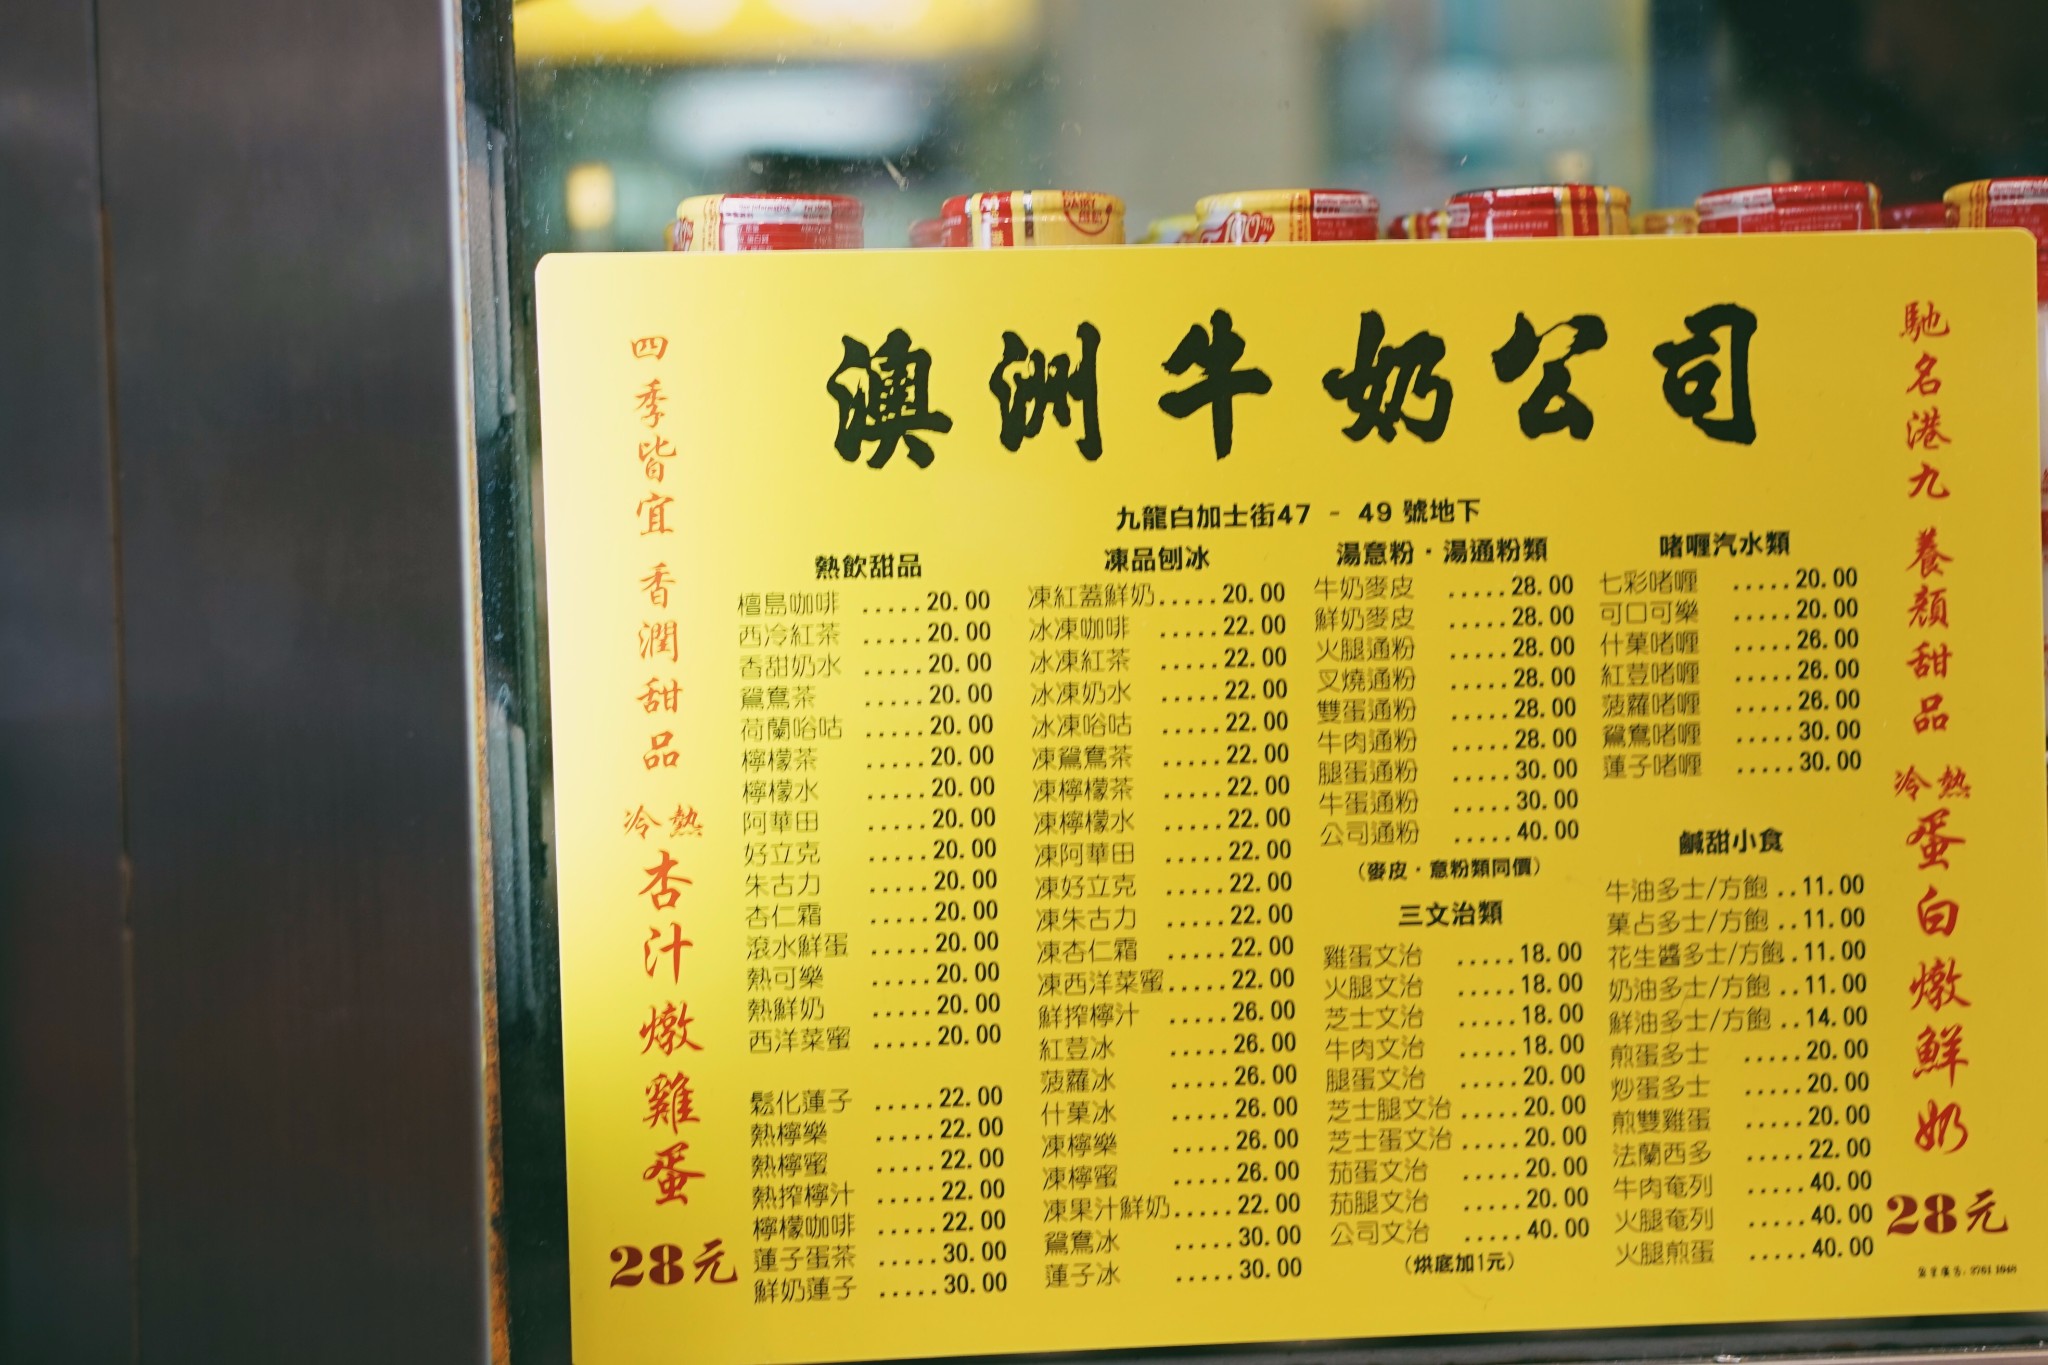 澳洲牛奶公司
九龍白加士街47 - 49 號地下
四季皆宜 香潤甜品
冷熱
杏汁燉雞蛋
28元
熱飲甜品
檀島咖啡 .....20.00
西冷紅茶 .....20.00
香甜奶水 .....20.00
鴛鴦茶 .....20.00
荷蘭唂咕 .....20.00
檸檬茶 .....20.00
檸檬水 .....20.00
阿華田 .....20.00
好立克 .....20.00
朱古力 .....20.00
杏仁霜 .....20.00
滾水鮮蛋 .....20.00
熱可樂 .....20.00
熱鮮奶 .....20.00
西洋菜蜜 .....20.00
鬆化蓮子 .....22.00
熱檸樂 .....22.00
熱檸蜜 .....22.00
熱搾檸汁 .....22.00
檸檬咖啡 .....22.00
蓮子蛋茶 .....30.00
鮮奶蓮子 .....30.00
凍品刨冰
凍紅蓋鮮奶.....20.00
冰凍咖啡 .....22.00
冰凍紅茶 .....22.00
冰凍奶水 .....22.00
冰凍唂咕 .....22.00
凍鴛鴦茶 .....22.00
凍檸檬茶 .....22.00
凍檸檬水 .....22.00
凍阿華田 .....22.00
凍好立克 .....22.00
凍朱古力 .....22.00
凍杏仁霜 .....22.00
凍西洋菜蜜.....22.00
鮮搾檸汁 .....26.00
紅荳冰 .....26.00
菠蘿冰 .....26.00
什菓冰 .....26.00
凍檸樂 .....26.00
凍檸蜜 .....26.00
凍果汁鮮奶.....22.00
鴛鴦冰 .....30.00
蓮子冰 .....30.00
湯意粉·湯通粉類
牛奶麥皮 .....28.00
鮮奶麥皮 .....28.00
火腿通粉 .....28.00
叉燒通粉 .....28.00
雙蛋通粉 .....28.00
牛肉通粉 .....28.00
腿蛋通粉 .....30.00
牛蛋通粉 .....30.00
公司通粉 .....40.00
(麥皮·意粉類同價)
三文治類
雞蛋文治 .....18.00
火腿文治 .....18.00
芝士文治 .....18.00
牛肉文治 .....18.00
腿蛋文治 .....20.00
芝士腿文治.....20.00
芝士蛋文治.....20.00
茄蛋文治 .....20.00
茄腿文治 .....20.00
公司文治 .....40.00
(烘底加1元)
啫喱汽水類
七彩啫喱 .....20.00
可口可樂 .....20.00
什菓啫喱 .....26.00
紅荳啫喱 .....26.00
菠蘿啫喱 .....26.00
鴛鴦啫喱 .....30.00
蓮子啫喱 .....30.00
鹹甜小食
牛油多士/方飽 ..11.00
菓占多士/方飽 ..11.00
花生醬多士/方飽..11.00
奶油多士/方飽 ..11.00
鮮油多士/方飽 ..14.00
煎蛋多士 .....20.00
炒蛋多士 .....20.00
煎雙雞蛋 .....20.00
法蘭西多 .....22.00
牛肉奄列 .....40.00
火腿奄列 .....40.00
火腿煎蛋 .....40.00
馳名港九 養顏甜品
冷熱
蛋白燉鮮奶
28元